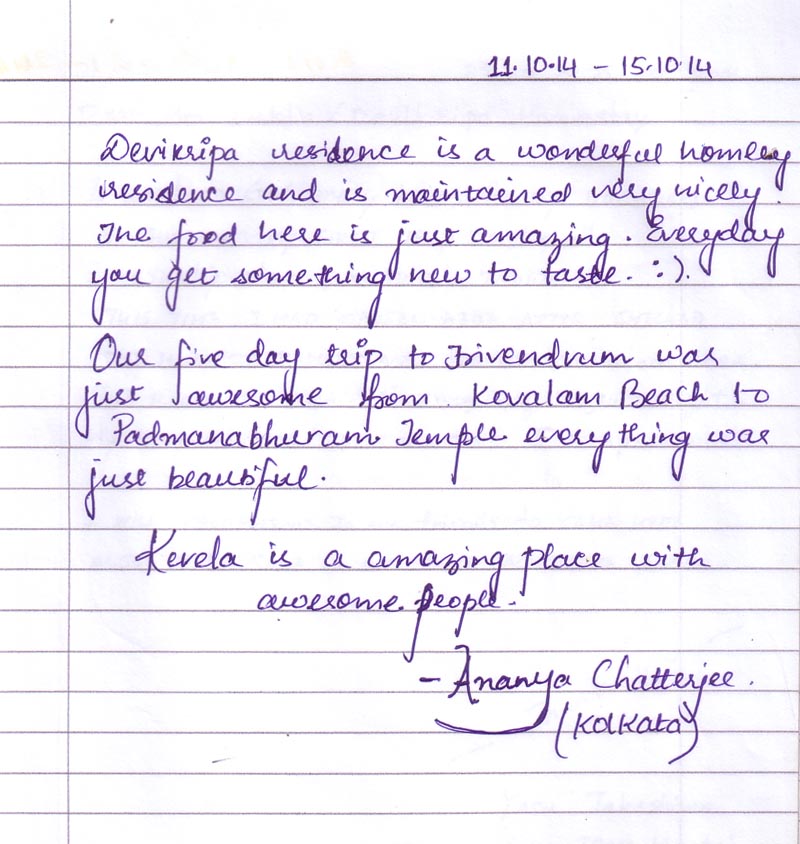 11.10.14 - 15.10.14
Devikripa residence is a wonderful homley
residence and is maintained very nicely.
The food here is just amazing. Everyday
you get something new to taste. :).
Our five day trip to Trivendrum was
just awesome from Kovalam Beach to
Padmanabhuram Temple everything was
just beautiful.
Kerela is a amazing place with
awesome people.
- Ananya Chatterjee.
(Kolkata)